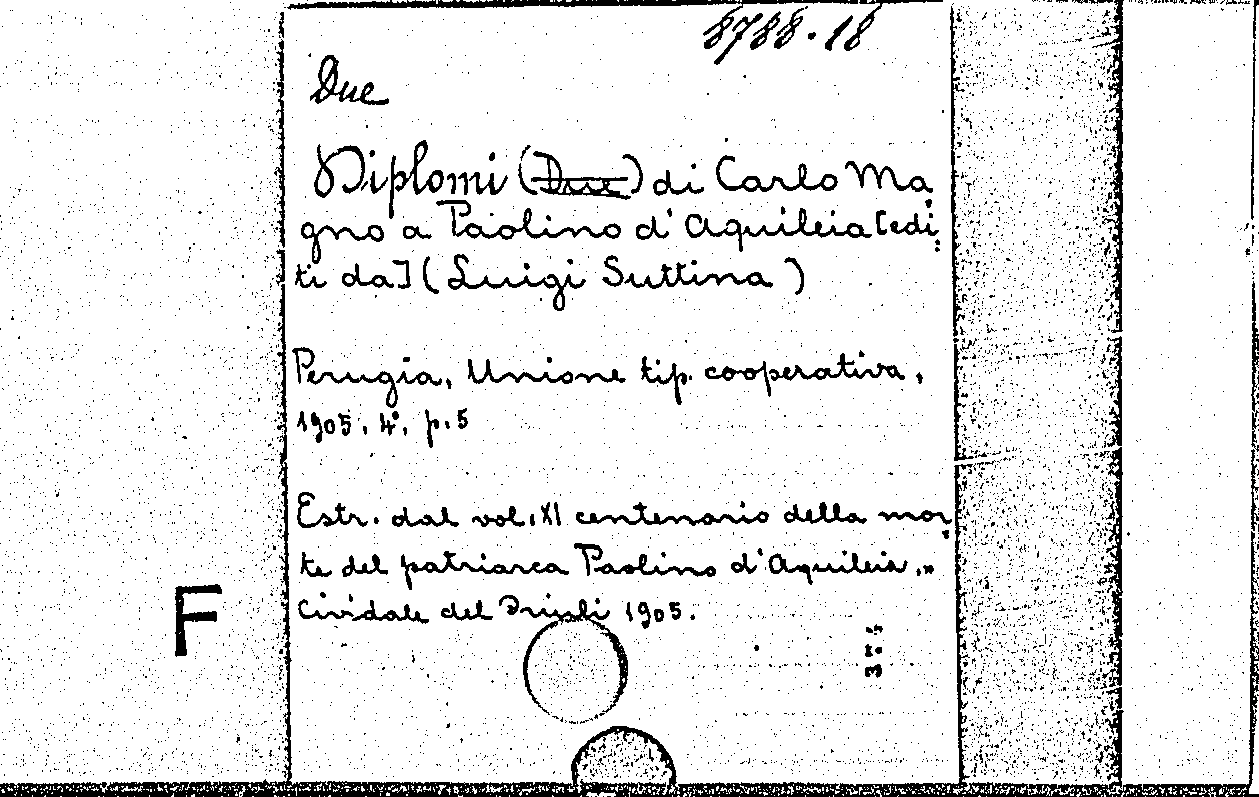 8788.18
Due
Diplomi (Due) di Carlo Ma
gno a Paolino d'Aquileia [edi
ti da] (Luigi Suttina)
Perugia, Unione tip. cooperativa,
1905. 4°. p. 5
Estr. dal vol. XI centenario della mor
te del patriarca Paolino d'Aquileia.,,
Cividale del Friuli 1905.
F